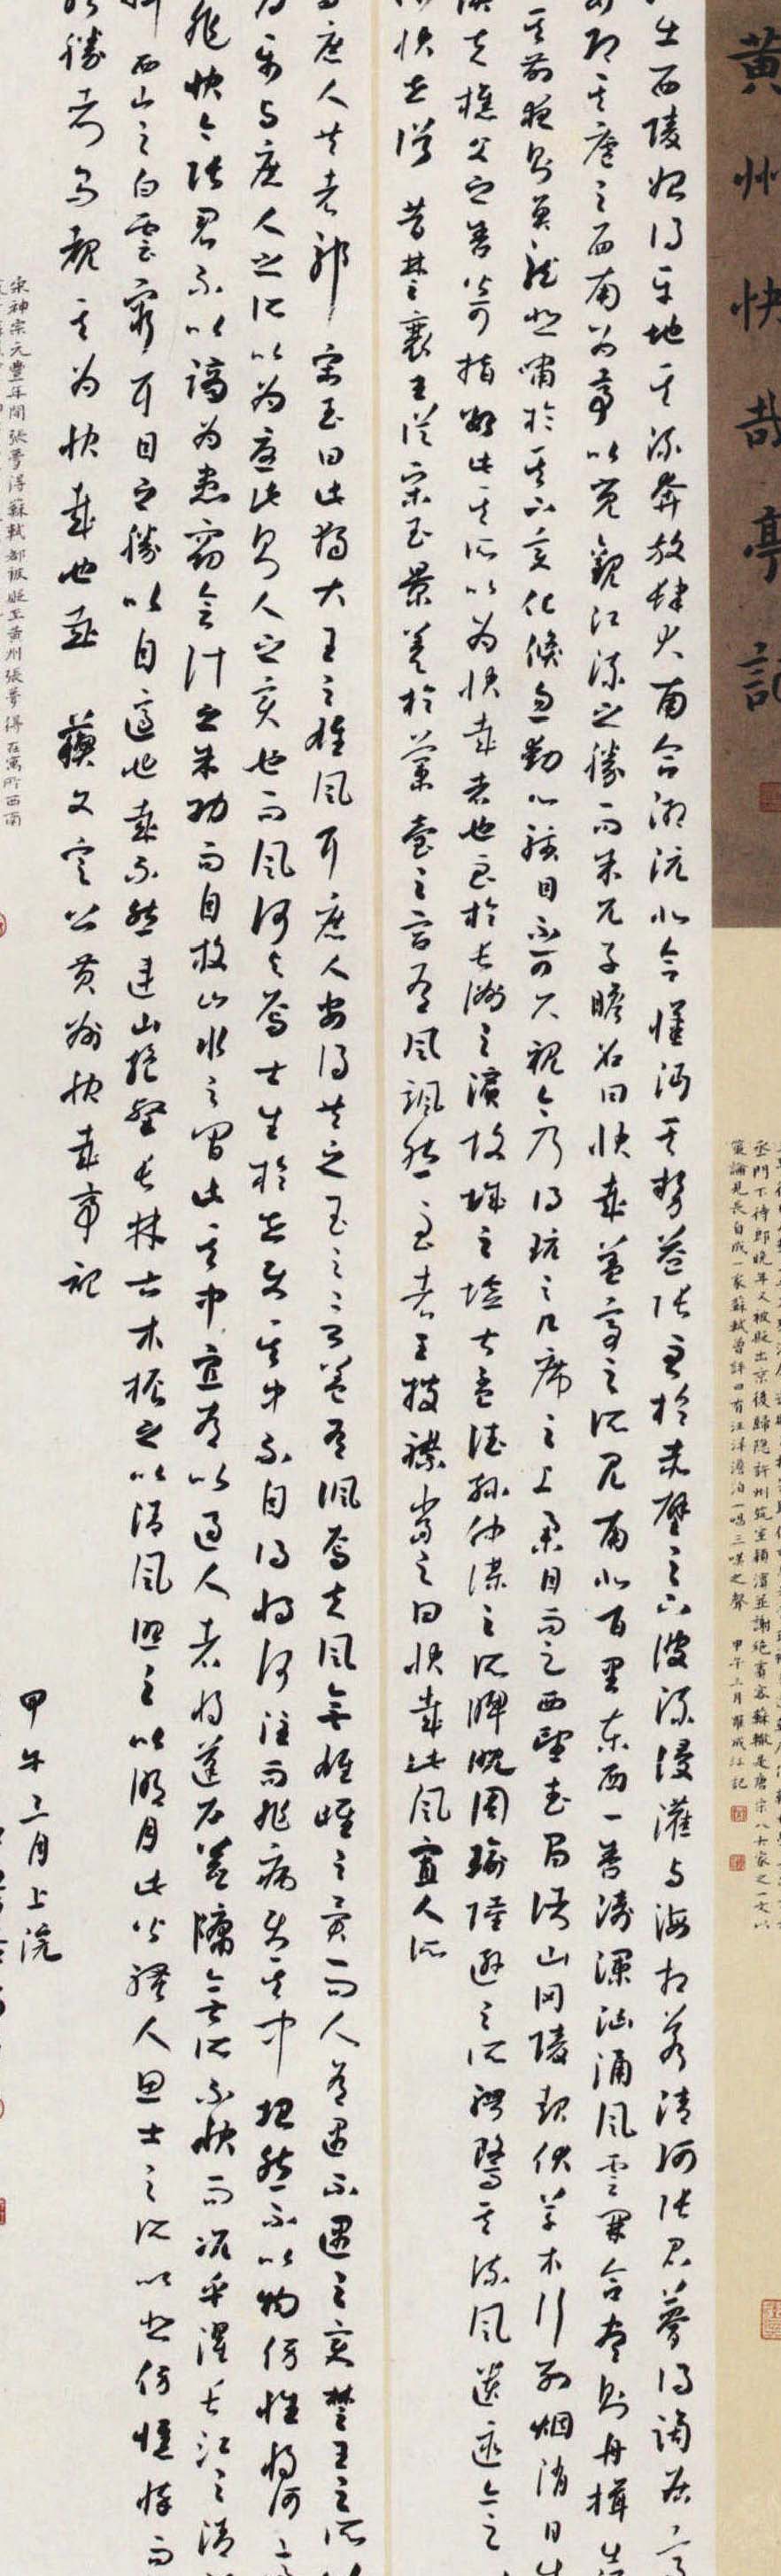 黄州快哉亭記
丞門下侍郎晚年又被貶出京後歸隱許州築室潁濱並謝絕賓客蘇轍是唐宋八大家之一文以
策論見長自成一家蘇軾曾評曰有汪洋澹泊一唱三嘆之聲 甲午三月
出西陵始得平地其流奔放肆大南合湘沅北合漢沔其勢益張至於赤壁之下波流浸灌與海相若清河張君夢得謫居
即其廬之西南為亭以覽觀江流之勝而余兄子瞻名曰快哉蓋亭之所見南北百里東西一舍濤瀾洶湧風雲開合晝則舟楫出
其前夜則魚龍悲嘯於其下變化倏忽動心駭目不可久視今乃得玩之几席之上舉目而足西望武昌諸山岡陵起伏草木行列烟消日出
漁夫樵父之舍皆可指數此其所以為快哉者也至於長洲之濱故城之墟曹孟德孫仲謀之所睥睨周瑜陸遜之所騁騖其流風遺迹亦足
快世俗 昔楚襄王從宋玉景差於蘭臺之宮有風颯然至者王披襟當之曰快哉此風寡人所
庶人共者耶 宋玉曰此獨大王之雄風耳庶人安得共之玉之言蓋有諷焉夫風無雄雌之異而人有遇不遇之變楚王之所以
樂與庶人之所以為憂此則人之變也而風何與焉士生於世使其中不自得將何往而非病使其中坦然不以物傷性將何
非快今張君不以謫為患竊會計之餘功而自放山水之間此其中宜有以過人者將蓬戶甕牖無所不快而況乎濯長江之清
西山之白雲窮耳目之勝以自適也哉不然連山絕壑長林古木振之以清風照之以明月此皆騷人思士之所以悲傷憔悴而
勝者烏覩其為快哉也哉 蘇文定公黃州快哉亭記
宋神宗元豐年間張夢得蘇軾都被貶至黃州張夢得在寓所西南
甲午三月上浣